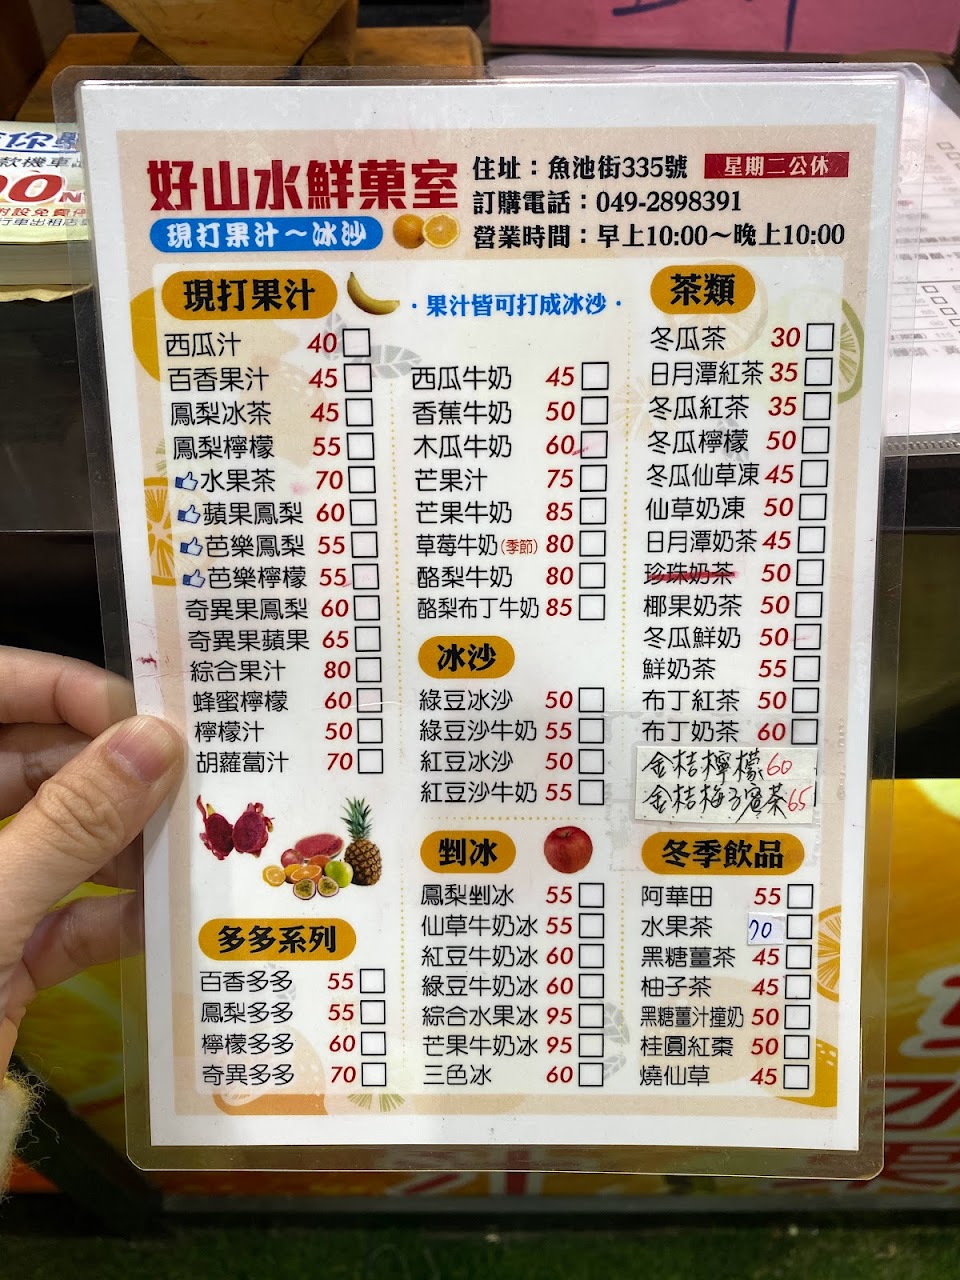 好山水鮮菓室
現打果汁～冰沙
住址：魚池街335號 星期二公休
訂購電話：049-2898391
營業時間：早上10:00～晚上10:00
現打果汁
西瓜汁 40
百香果汁 45
鳳梨冰茶 45
鳳梨檸檬 55
水果茶 70
蘋果鳳梨 60
芭樂鳳梨 55
芭樂檸檬 55
奇異果鳳梨 60
奇異果蘋果 65
綜合果汁 80
蜂蜜檸檬 60
檸檬汁 50
胡蘿蔔汁 70
多多系列
百香多多 55
鳳梨多多 55
檸檬多多 60
奇異多多 70
·果汁皆可打成冰沙·
西瓜牛奶 45
香蕉牛奶 50
木瓜牛奶 60
芒果汁 75
芒果牛奶 85
草莓牛奶(季節) 80
酪梨牛奶 80
酪梨布丁牛奶 85
冰沙
綠豆冰沙 50
綠豆沙牛奶 55
紅豆冰沙 50
紅豆沙牛奶 55
剉冰
鳳梨剉冰 55
仙草牛奶冰 55
紅豆牛奶冰 60
綠豆牛奶冰 60
綜合水果冰 95
芒果牛奶冰 95
三色冰 60
茶類
冬瓜茶 30
日月潭紅茶 35
冬瓜紅茶 35
冬瓜檸檬 50
冬瓜仙草凍 45
仙草奶凍 50
日月潭奶茶 45
珍珠奶茶 50
椰果奶茶 50
冬瓜鮮奶 50
鮮奶茶 55
布丁紅茶 50
布丁奶茶 60
金桔檸檬60
金桔梅子蜜茶65
冬季飲品
阿華田 55
水果茶 70
黑糖薑茶 45
柚子茶 45
黑糖薑汁撞奶 50
桂圓紅棗 50
燒仙草 45